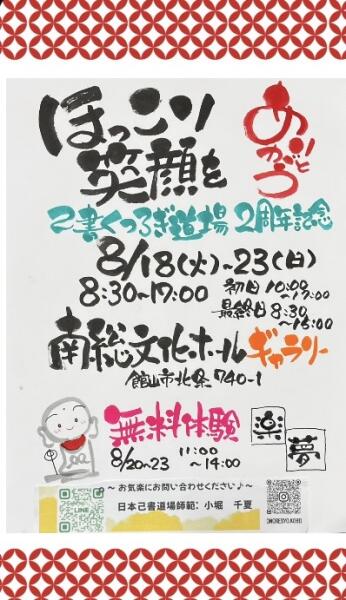 ほっこり
笑顔を
ありがとう
己書くつろぎ道場 2周年記念
8/18(火)~23(日)
8:30~17:00
初日 10:00
~17:00
最終日 8:30
~15:00
南総文化ホール ギャラリー
館山市北条740-1
無料体験
8/20~23 11:00
~14:00
楽
夢
~ お気楽にお問い合わせください♪~
日本己書道場師範: 小堀 千夏
LINE